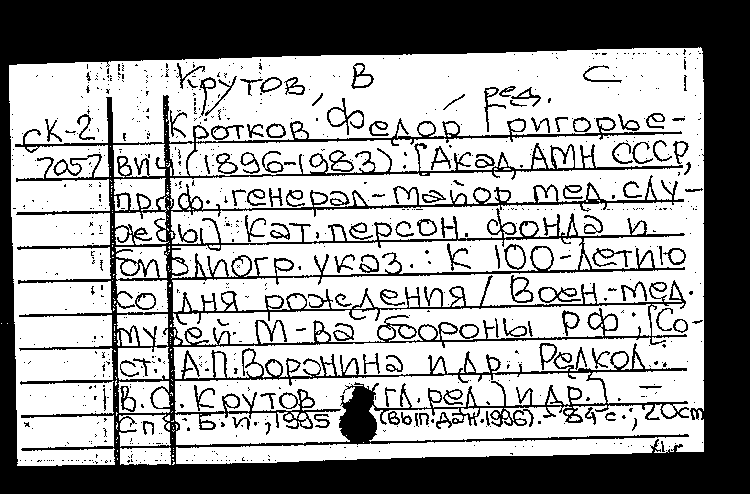 Крутов, В С
, ред.
СК-2 Кротков Федор Григорье-
7057 вич (1896-1983): [Акад. АМН СССР,
проф., генерал-майор мед. слу-
жбы]: Кат. персон. фонда и
библиогр. указ.: К 100-летию
со дня рождения / Воен.-мед.
музей М-ва обороны РФ; [Со-
ст.: А.П. Воронина и др.; Редкол.:
В.С. Крутов (гл. ред.) и др.]. —
СПб: Б.и., 1995 (Вып. дан. 1996). - 84 с.; 20 cm